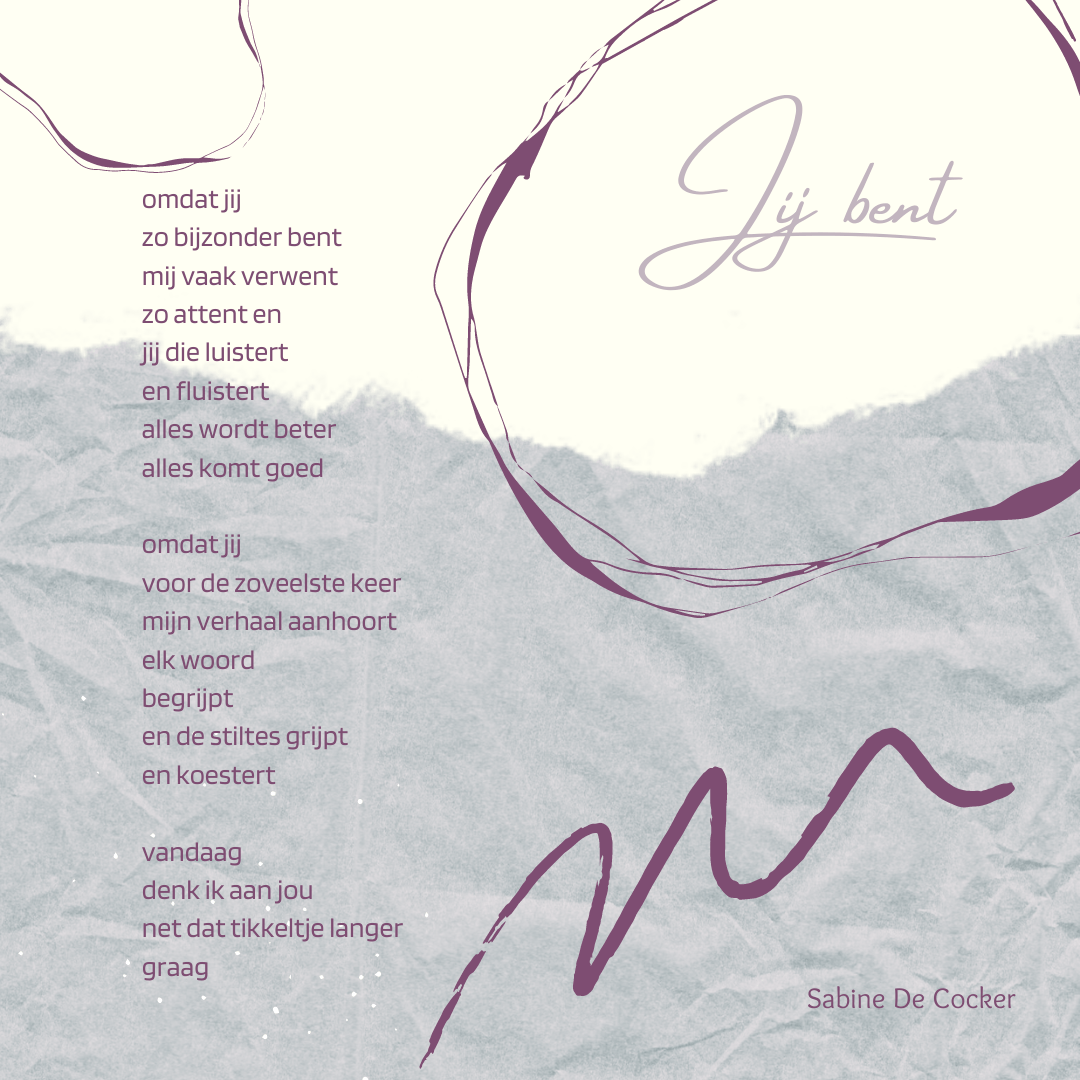 Jij bent
omdat jij
zo bijzonder bent
mij vaak verwent
zo attent en
jij die luistert
en fluistert
alles wordt beter
alles komt goed
omdat jij
voor de zoveelste keer
mijn verhaal aanhoort
elk woord
begrijpt
en de stiltes grijpt
en koestert
vandaag
denk ik aan jou
net dat tikkeltje langer
graag
Sabine De Cocker